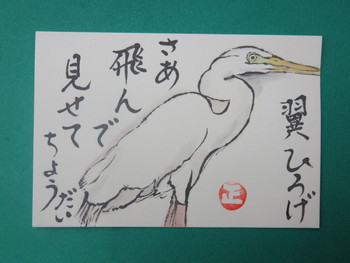 翼ひろげ
さあ
飛んで
見せて
ちょうだい
正